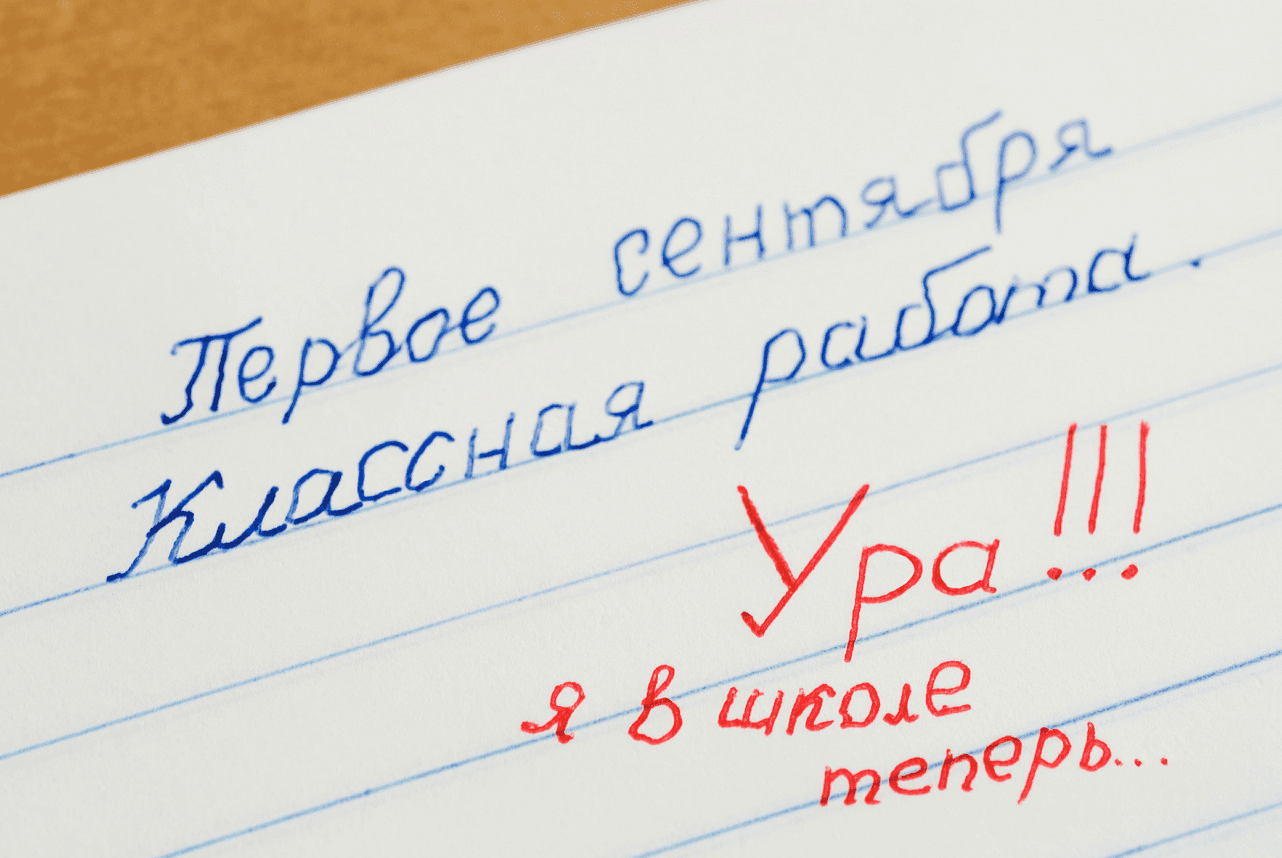 Первое сентября
Классная работа.
Ура!!!
я в школе
теперь...